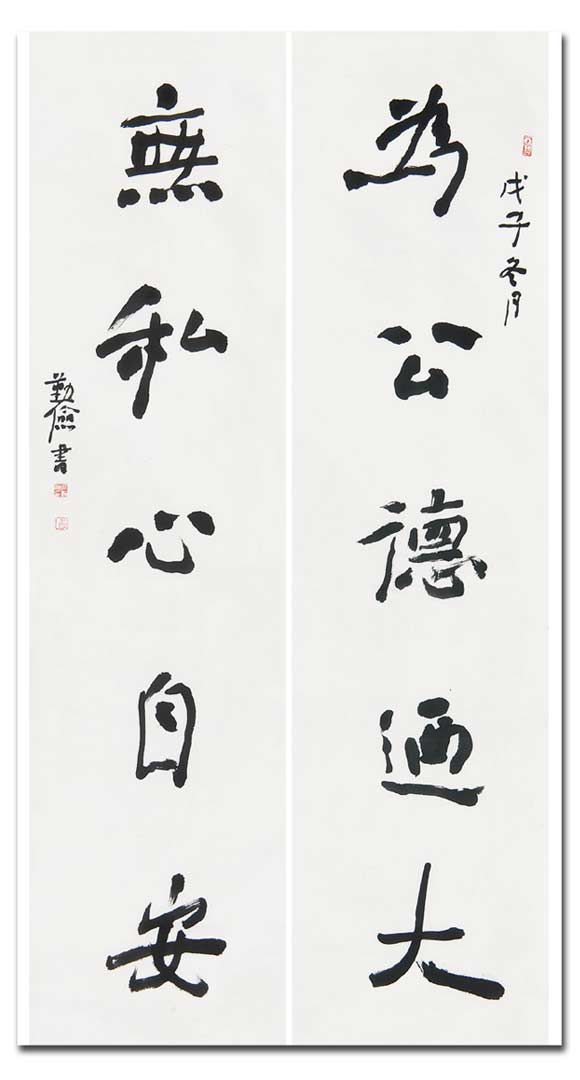 戊子冬月
為公德迺大
無私心自安
勤儉書